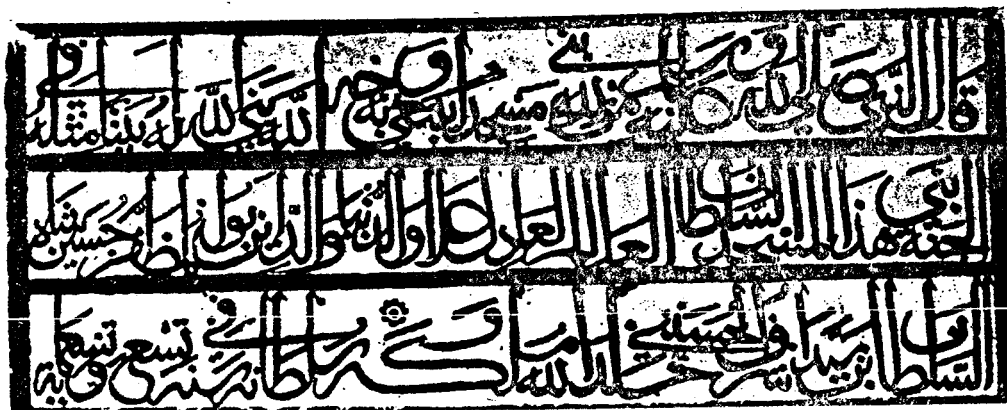 قال النبي صلى الله عليه وسلم من بنى لله مسجدا يبتغي به وجه الله بنى الله له بيتا مثله في
الجنة بنى هذا المسجد السلطان العالم العادل علاء الدنيا والدين ابو المظفر حسين شاه
السلطان بن سيد اشرف الحسيني خلد الله ملكه وسلطانه في سنة تسع وتسعمائة